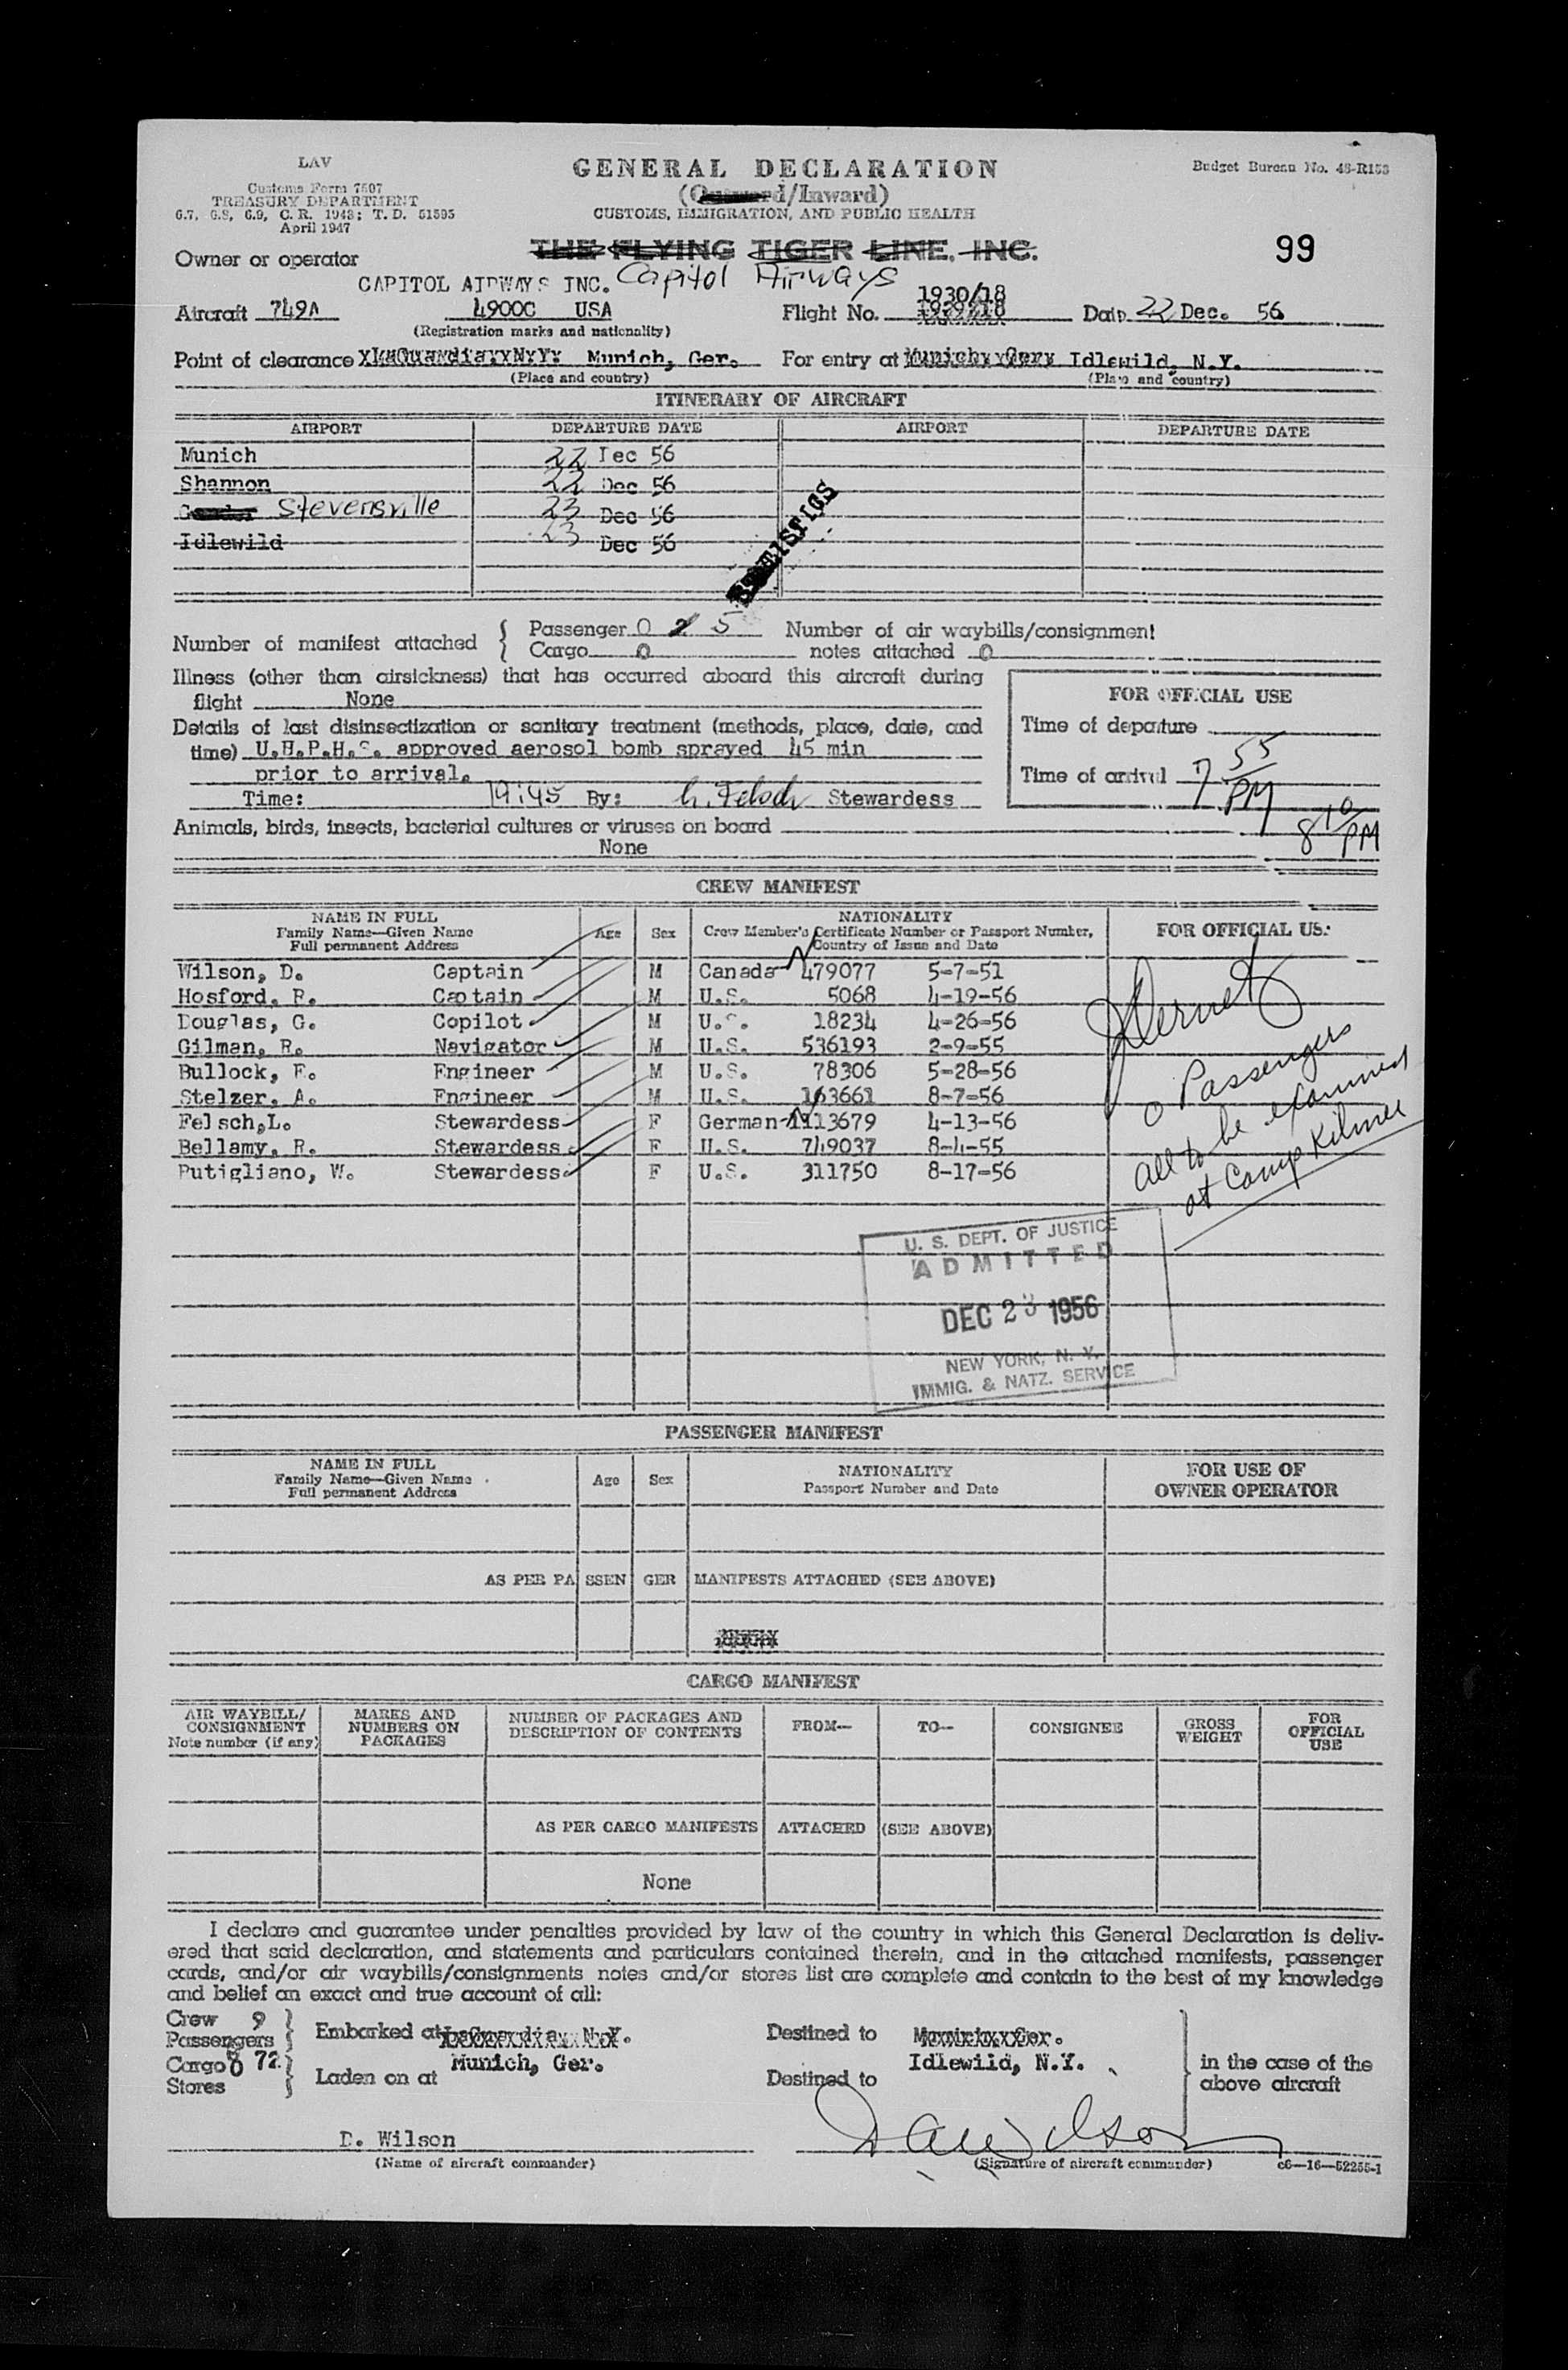 LAV
Customs Form 7507
TREASURY DEPARTMENT
6.7, 6.8, 6.9, C. R. 1943; T. D. 51595
April 1947
GENERAL DECLARATION
(Outward/Inward)
CUSTOMS, IMMIGRATION, AND PUBLIC HEALTH
Budget Bureau No. 48-R153
THE FLYING TIGER LINE, INC.
99
Owner or operator
CAPITOL AIRWAYS INC. Capitol Airways
1930/18
Aircraft 749A 4900C USA Flight No. Date 22 Dec. 56
(Registration marks and nationality)
Point of clearance Munich, Ger. For entry at Idlewild, N.Y.
(Place and country) (Place and country)
ITINERARY OF AIRCRAFT
AIRPORT DEPARTURE DATE AIRPORT DEPARTURE DATE
Munich 22 Dec 56
Shannon 22 Dec 56
Stevensville 23 Dec 56
Idlewild 23 Dec 56
Number of manifest attached { Passenger 0 5 Number of air waybills/consignment
Cargo 0 notes attached 0
Illness (other than airsickness) that has occurred aboard this aircraft during
flight None
FOR OFFICIAL USE
Details of last disinsectization or sanitary treatment (methods, place, date, and
time) U.H.P.H.S. approved aerosol bomb sprayed 45 min
prior to arrival.
Time: 19:45 By: L. Felsch Stewardess
Time of departure
Time of arrival 7 55 PM
8 10 PM
Animals, birds, insects, bacterial cultures or viruses on board
None
CREW MANIFEST
NAME IN FULL
Family Name—Given Name
Full permanent Address
Age Sex
NATIONALITY
Crew Member's Certificate Number or Passport Number,
Country of Issue and Date
FOR OFFICIAL USE
Wilson, D. Captain M Canada 479077 5-7-51
Hosford, R. Captain M U.S. 5068 4-19-56
Douglas, G. Copilot M U.S. 18234 4-26-56
Gilman, R. Navigator M U.S. 536193 2-9-55
Bullock, E. Engineer M U.S. 78306 5-28-56
Stelzer, A. Engineer M U.S. 163661 8-7-56
Felsch,L. Stewardess F German 1113679 4-13-56
Bellamy, R. Stewardess F U.S. 749037 8-4-55
Putigliano, W. Stewardess F U.S. 311750 8-17-56
0 Passengers
all to be examined
at Camp Kilmer
U. S. DEPT. OF JUSTICE
ADMITTED
DEC 23 1956
NEW YORK, N. Y.
IMMIG. & NATZ. SERVICE
PASSENGER MANIFEST
NAME IN FULL
Family Name—Given Name
Full permanent Address
Age Sex
NATIONALITY
Passport Number and Date
FOR USE OF
OWNER OPERATOR
AS PER PASSENGER MANIFESTS ATTACHED (SEE ABOVE)
CARGO MANIFEST
AIR WAYBILL/
CONSIGNMENT
Note number (if any)
MARKS AND
NUMBERS ON
PACKAGES
NUMBER OF PACKAGES AND
DESCRIPTION OF CONTENTS
FROM— TO— CONSIGNEE
GROSS
WEIGHT
FOR
OFFICIAL
USE
AS PER CARGO MANIFESTS ATTACHED (SEE ABOVE)
None
I declare and guarantee under penalties provided by law of the country in which this General Declaration is deliv-
ered that said declaration, and statements and particulars contained therein, and in the attached manifests, passenger
cards, and/or air waybills/consignments notes and/or stores list are complete and contain to the best of my knowledge
and belief an exact and true account of all:
Crew 9
Passengers
Cargo 0 72
Stores
Embarked at LaGuardia, N.Y.
Munich, Ger.
Laden on at
Destined to Munich, Ger.
Idlewild, N.Y.
Destined to
in the case of the
above aircraft
D. Wilson
(Name of aircraft commander)
(Signature of aircraft commander)
c6—16—52255-1